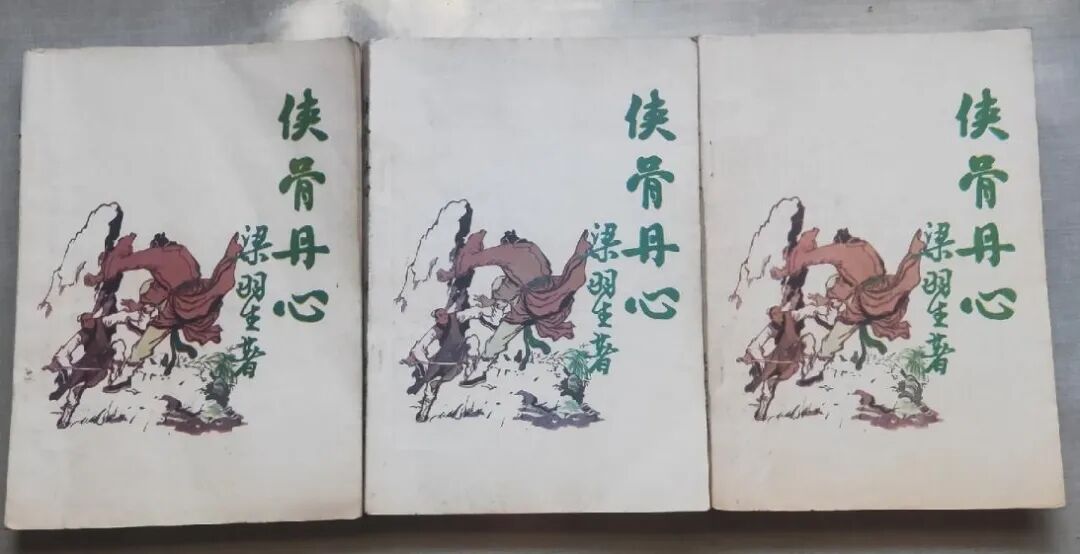 侠骨丹心
梁羽生著
侠骨丹心
梁羽生著
侠骨丹心
梁羽生著